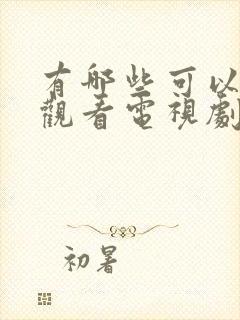 有哪些可以
觀看電視劇
初暑